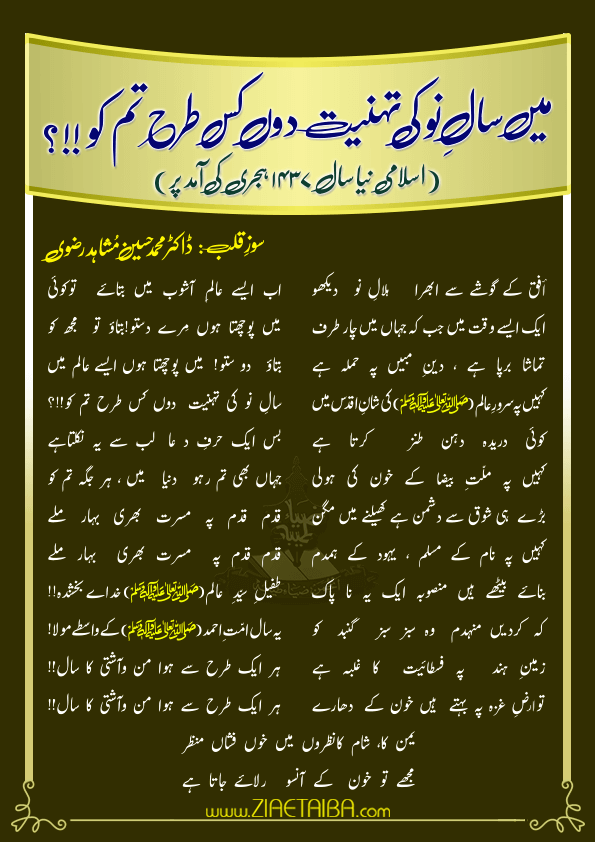 میں سالِ نو کی تہنیت دوں کس طرح تم کو !!؟
(اسلامی نیا سال ۱۴۳۷ ہجری کی آمد پر)
سوزِ قلب: ڈاکٹر محمد حسین مُشاہد رضوی
اُفق کے گوشے سے ابھرا ہلالِ نو دیکھو
ایک ایسے وقت میں جب کہ جہاں میں چار طرف
تماشا برپا ہے ، دینِ مبیں پہ حملہ ہے
کہیں پہ سرورِ عالم (ﷺ) کی شانِ اقدس میں
کوئی دریدہ دہن طنز کرتا ہے
کہیں پہ ملّتِ بیضا کے خون کی ہولی
بڑے ہی شوق سے دشمن ہے کھیلنے میں مگن
کہیں پہ نام کے مسلم ، یہود کے ہمدم
بنائے بیٹھے ہیں منصوبہ ایک یہ نا پاک
کہ کردیں منہدم وہ سبز سبز گنبد کو
زمینِ ہند پہ فسطائیت کا غلبہ ہے
تو ارضِ غزہ پہ بہتے ہیں خون کے دھارے
اب ایسے عالمِ آشوب میں بتائے تو کوئی
میں پوچھتا ہوں مِرے دستو! بتاؤ تو مجھ کو
بتاؤ دو ستو! میں پوچھتا ہوں ایسے عالم میں
سالِ نو کی تہنیت دوں کس طرح تم کو!!؟
بس ایک حرفِ دعا لب سے یہ نکلتا ہے
جہاں بھی تم رہو دنیا میں ، ہر جگہ تم کو
قدم قدم پہ مسرت بھری بہار ملے
قدم قدم پہ مسرت بھری بہار ملے
طفیلِ سیّدِ عالم (ﷺ) خدائے بخشندہ!!
یہ سال امتِ احمد (ﷺ) کے واسطے مولا!
ہر ایک طرح سے ہو امن و آشتی کا سال!!
ہر ایک طرح سے ہو امن و آشتی کا سال!!
یمن کا، شام کا نظروں میں خوں فشاں منظر
مجھے تو خون کے آنسو رلائے جاتا ہے
www.ZIAETAIBA.com